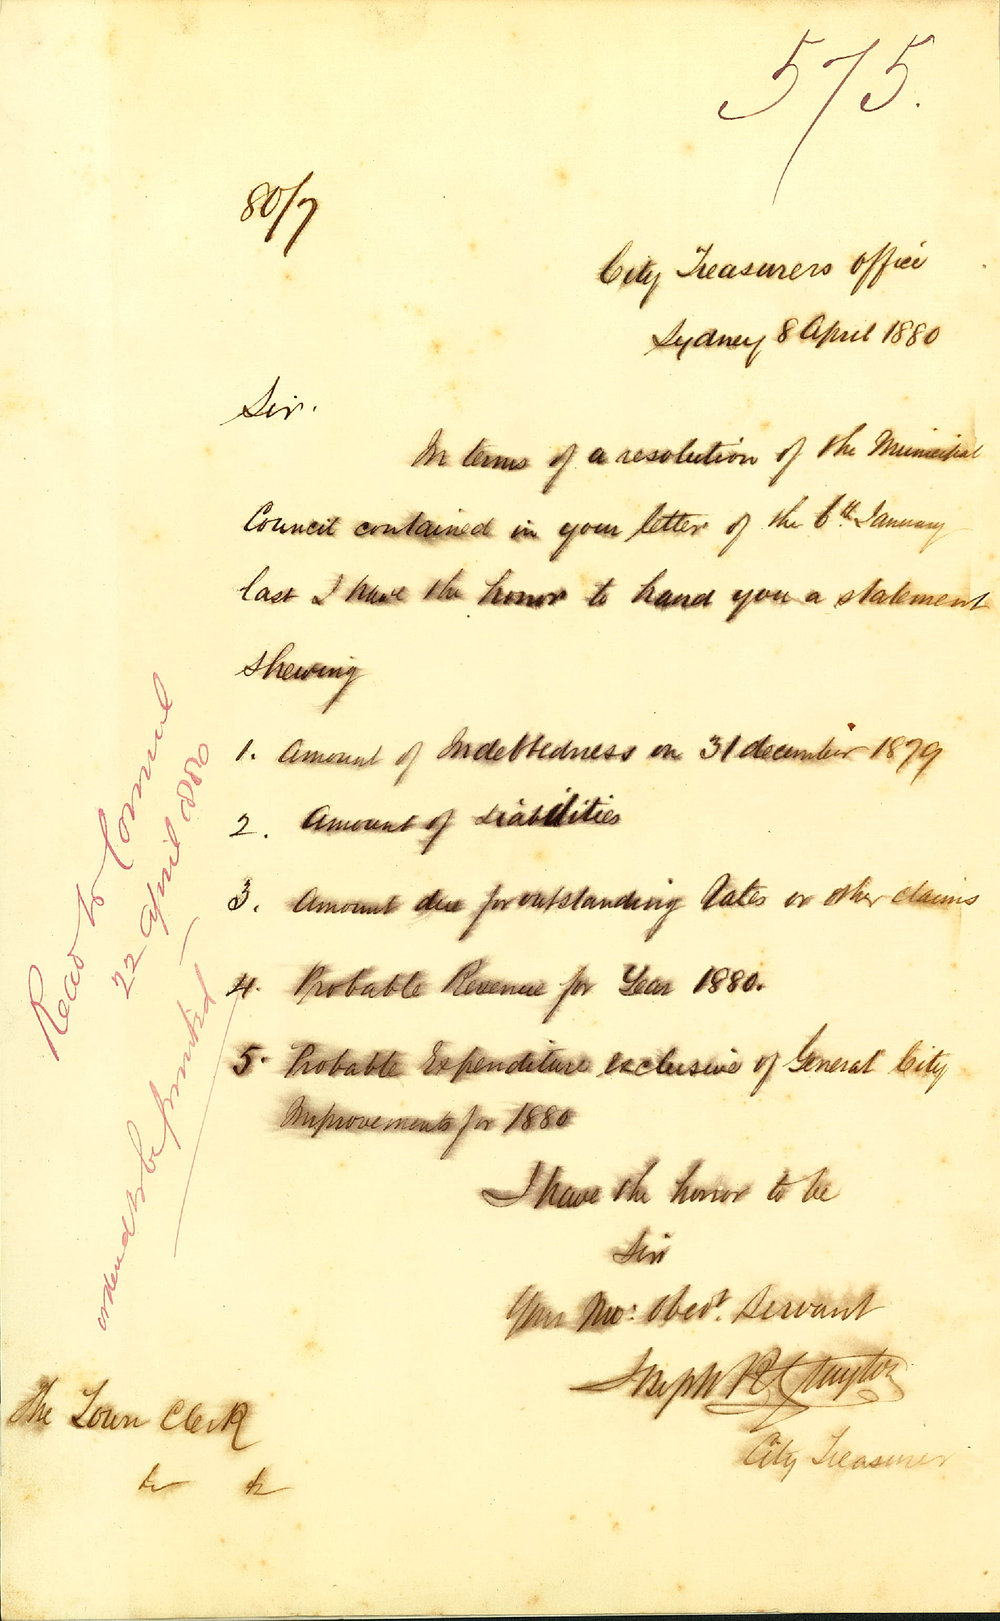 575.
80/7
City Treasurers Office
Sydney 8 April 1880
Sir.
In terms of a resolution of the Municipal
Council contained in your letter of the 6th January
last I have the honor to hand you a statement
shewing
1. Amount of Indebtedness on 31 december 1879
2. Amount of Liabilities
3. Amount due for outstanding Rates or other claims
4. Probable Revenue for Year 1880.
5. Probable Expenditure exclusive of General City
Improvements for 1880
I have the honor to be
Sir
Your Mo: Obedt. Servant
Joseph
City Treasurer
The Town Clerk
&c &c
Read to Council
22 April 1880
ordered to be printed